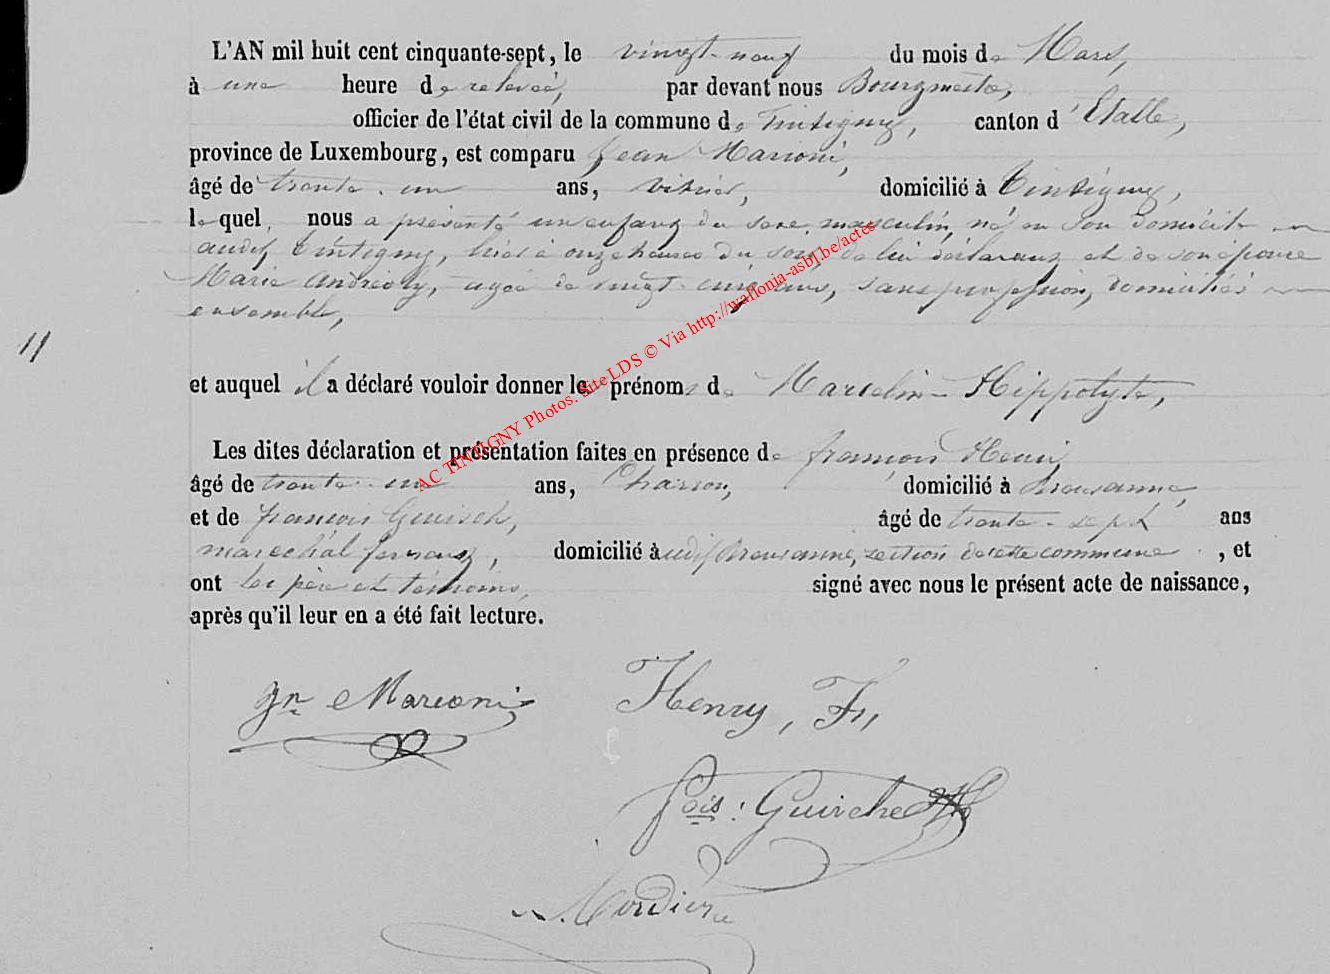 L'AN mil huit cent cinquante-sept, le vingt-neuf du mois de Mars,
à une heure de relevée, par devant nous Bourgmestre,
officier de l'état civil de la commune de Tintigny, canton d'Etalle,
province de Luxembourg, est comparu Jean Marioni,
âgé de trente-un ans, vitrier, domicilié à Tintigny,
lequel nous a présenté un enfant du sexe masculin, né en son domicile
audit Tintigny, hier à onze heures du soir, de lui déclarant et de son épouse
Marie Andréoly, agée de vingt-cinq ans, sans profession, domiciliés
ensemble,
11
et auquel il a déclaré vouloir donner les prénoms de Marcelin-Hippolyte,
Les dites déclaration et présentation faites en présence de françois Henri,
âgé de trente-un ans, Charron, domicilié à
et de françois Guirsch, âgé de trente-sept ans
maréchal ferrant, domicilié audit section de cette commune, et
ont les père et témoins, signé avec nous le présent acte de naissance,
après qu'il leur en a été fait lecture.
Jn Marioni
Henry, Fs,
fçois: Guirche
AC TINTIGNY Photos: site LDS © Via http://wallonia-asbl.be/actes